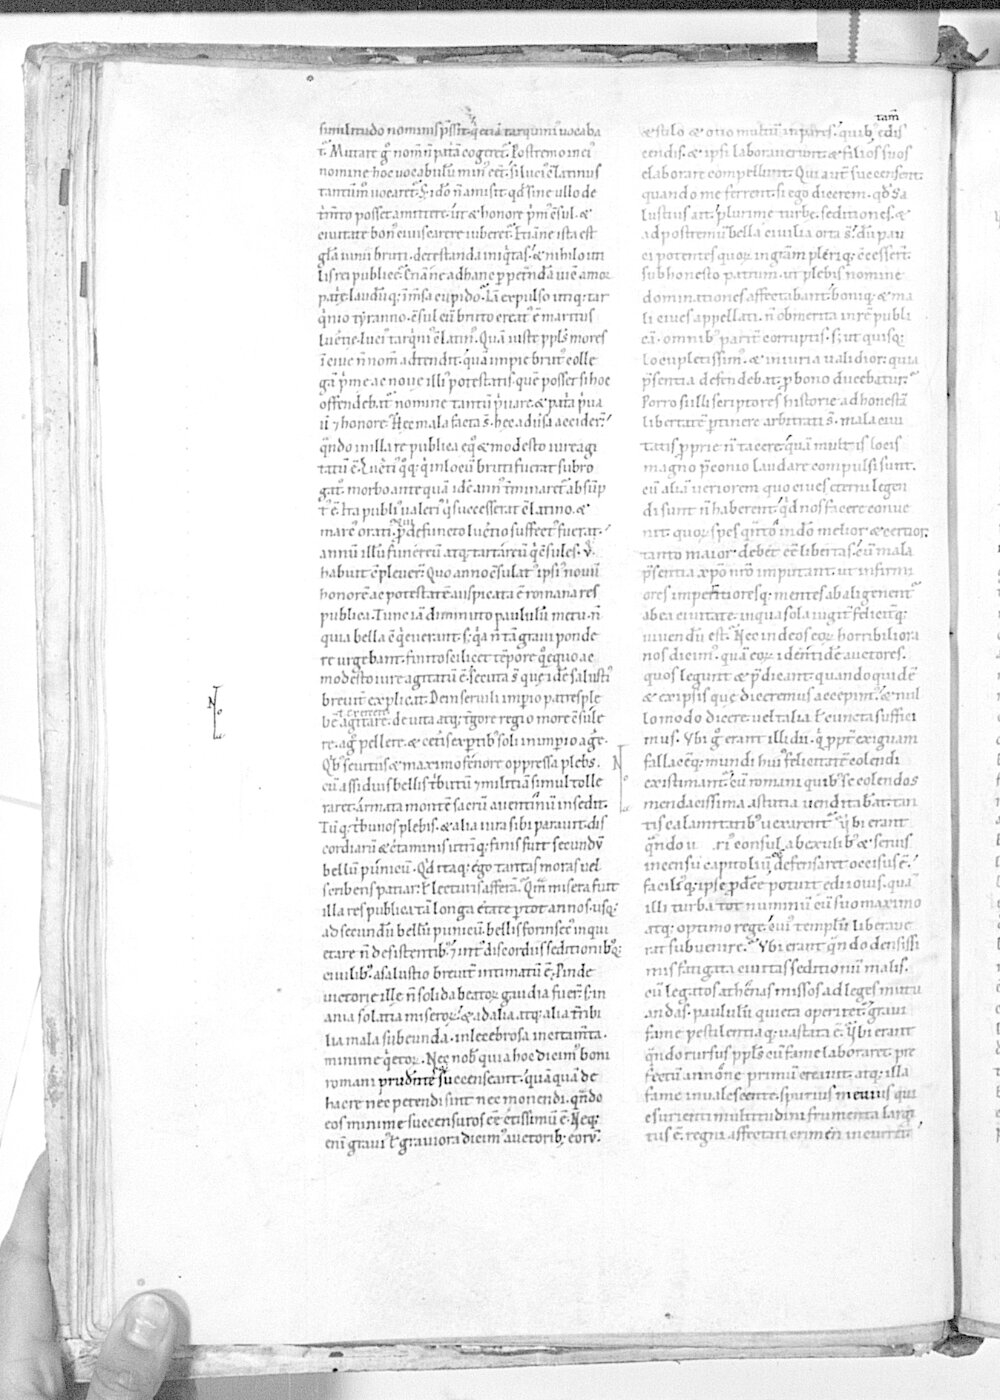 similitudo nominis p̄ssit. q̇ etiā tarquiniꝰ uocaba
t̄. Mutare gͦ nom̄ n̄ patā cogeret̄. Postremo in eiꝰ
nomine hoc uocabulū minꝰ eēt. si luciꝰ c̄latinus
tantūm̊ uocaret̄. S; idō n̄ amisit. qd̄ sine ullo de
t̄m̄to posset amittere. ut & honore p̄mꝰ c̄sul. &
ciuitate bonꝰ ciuis carere iuberet̄. Etiāne ista est
gl̄a iunii bruti. detestanda iniq̇tas. & nihilo uti
lis rei publicę. Etiāne ad hanc ꝑpetn̄da uic̄ amor
patrię. laudūq; īm̄sa cupido. Iā expulso utiq; tar
q̇nio tyranno. c̄sul cū bruto creatꝰ ē maritus
lucr̄tię. luciꝰ tarq̇niꝰ c̄latinꝰ. Quā iuste ppl̄s mores
ī ciue n̄ nom̄ adtendit. quā impie brutꝰ colle
gā p̄mę ac nouę illiꝰ potestatis. quē posset si hoc
offendebat̄ nomine tantū p̄uare. & patā p̄ua
uī ⁊ honore. Hęc mala facta s̄. hęc aduersa accidert̄.
q̄ndo in illa re publica eq̊ & modesto iure agi
tatū ē. Lucr̄tiꝰ q̊q; q̇ in locū bruti fuerat subro
gatꝰ. morbo ante quā idē annꝰ t̄minaret̄ absūp
tꝰ ē. Ita publiꝰ ualeriꝰ q̇ successerat c̄latino. &
marcꝰ oratiꝰ. q̇ ꝓ defuncto lucr̄tio suffectꝰ fuerat.
annū illū funereū atq; tartareū q̇ c̄sules .v.
habuit c̄pleuert̄. Quo anno c̄sulatꝰ ipsiꝰ nouū
honorē ac potestatē auspicata ē romana res
publica. Tunc iā diminuto paululū metu. n̄
quia bella c̄q̇euerant. s; q̇a n̄ tā graui ponde
re urgebant. finito scilicet tēpore q̊ equo ac
modesto iure agitatū ē. secuta s̄ que idē salustiꝰ
breuit̄ explicat. Dein seruili imperio patres ple
ƚ exercere
bē agitare. de uita atq; t̄gore regio more c̄sule
re. agͦ pellere. & cet̄is exꝑtibꝰ soli in imꝑio agͤe.
Qb; sęuitiis & maximo fēnore oppressa plebs.
cū assiduis bellis tͥbutū ⁊ militiā simul tolle
raret. armata montē sacrū auentinū insedit.
Tū q; tͥbunos plebis. & alia iura sibi parauit. dis
cordiarū & c̄taminis utriq; finis fuit secundū
bellū punicū. Qd̄ itaq; ego tantas moras uel
scribens patiar. ƚ lecturis afferā. Qm̄ misera fuit
illa res publica tā longa ętate ꝑ tot annos. usq;
ad secundū bellū punicū. bellis forinsec̄ inqui
etare n̄ desistentibꝰ. ⁊ int̄ discordiis seditionibꝰq;
ciuilibꝰ. a salustio breuit̄ intimatū ē. Pinde
uictorię ille n̄ solida beatoꝝ gaudia fuer̄. s; in
ania solatia miseroꝝ. & ad alia. atq; alia t̄ribi
lia mala subeunda. inlecebrosa incitam̄ta.
minime q̇etoꝝ. Nec nobꝰ quia hoc dicimꝰ boni
romani prudn̄tesq; succenseant. quāquā de
hac re nec petendi sint nec monendi. q̄ndo
eos minime succensuros eē c̄tissimū ē. Neq;
enī grauiꝰ ƚ grauiora dicimꝰ auctoribꝰ eoꝝ.
tam̄
& stilo & otio multū inpares. quibꝰ edis
cendis. & ipsi laborauerunt. & filios suos
elaborare compellunt. Qui aut̄ succensent.
quando me ferrent. si ego dicerem. qd̄ sa
lustius ait. plurimę turbę. seditiones. &
ad postremū bella ciuilia orta s̄. dū pau
ci potentes quoꝝ in grām pleriq; c̄cessert̄.
sub honesto patrum. ut plebis nomine
dominationes affectabant. boniq; & ma
li ciues appellati. n̄ ob merita in rē publi
cā. omnibꝰ parit̄ corruptis. s; ut quisq;
locupletissimꝰ. & iniuria ualidior. quia
p̄sentia defendebat. ꝓ bono ducebatur.
Porro si illi scriptores historię ad honestā
libertatē ꝑtinere arbitrati s̄. mala ciui
tatis ꝓprię n̄ tacere. quā multis locis
magno p̄conio laudare compulsi sunt.
cū aliā ueriorem quo ciues ęterni legen
di sunt n̄ haberent. q̇d nos facere conue
nit. quoꝝ spes q̄nto in dō melior & certior.
tanto maior debet eē libertas. cū mala
p̄sentia xp̄o nr̄o imputant. ut infirmi
ores imꝑitioresq; mentes abaligenent̄
ab ea ciuitate. in qua sola iugit̄ felicit̄q;
uiuendū est. Nec in deos eoꝝ horribiliora
nos dicimꝰ. quā eoꝝ idētidē auctores.
quos legunt & p̄dicant. quando quidē
& ex ipsis quę diceremus accepimꝰ. & nul
lo modo dicere uel talia ƚ cuncta suffici
mus. Ybi gͦ erant illi dii. q̇ ꝓpt̄ exiguam
fallacēq; mundi huiꝰ felicitatē colendi
existimant̄. cū romani quibꝰ se colendos
mendacissima astutia uenditabāt. tan
tis calamitatibꝰ uexarent̄. Ybi erant
q̄ndo u riꝰ consul ab exulibꝰ & seruis
incensū capitoliū. dū defensaret occisus ē.
faciliꝰq; ipse ꝓdēe potuit edi iouis. quā
illi turba tot numinū cū suo maximo
atq; optimo rege. cuiꝰ templū liberaue
rat subuenire. Ybi erant q̄ndo densissi
mis fatigata ciuitas seditionū malis.
cū legatos athēnas missos ad leges mutu
andas. paululū quieta operiret̄. graui
fame pestilentiaq; uastata ē. Ybi erant
q̄ndo rursus ppl̄s cū fame laboraret. pre
fectū annonę primū creauit. atq; illa
fame inualescente. spurius meuius qui
esurienti multitudini frumenta largi
tus ē. regni affectati crimen incurrit.
No
No